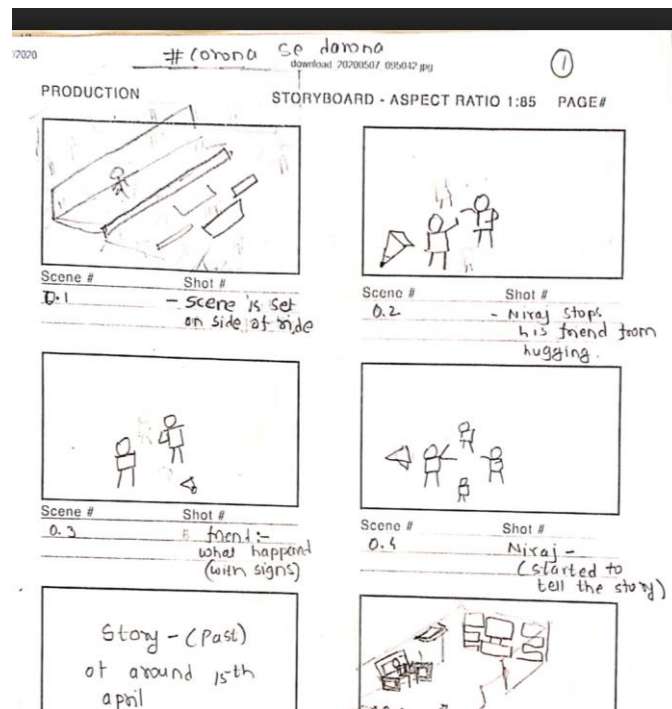 /2020
# Corona se darona
download 20200507 095042.jpg
1
PRODUCTION
STORYBOARD - ASPECT RATIO 1:85 PAGE#
Scene # Shot #
0.1 - scene is set
on side of
Scene # Shot #
0.2 - Niraj stops
his friend from
hugging.
Scene # Shot #
0.3 friend :-
what happend
(with signs)
Scene # Shot #
Niraj -
(started to
tell the story)
Story - (Past)
of around 15th
april